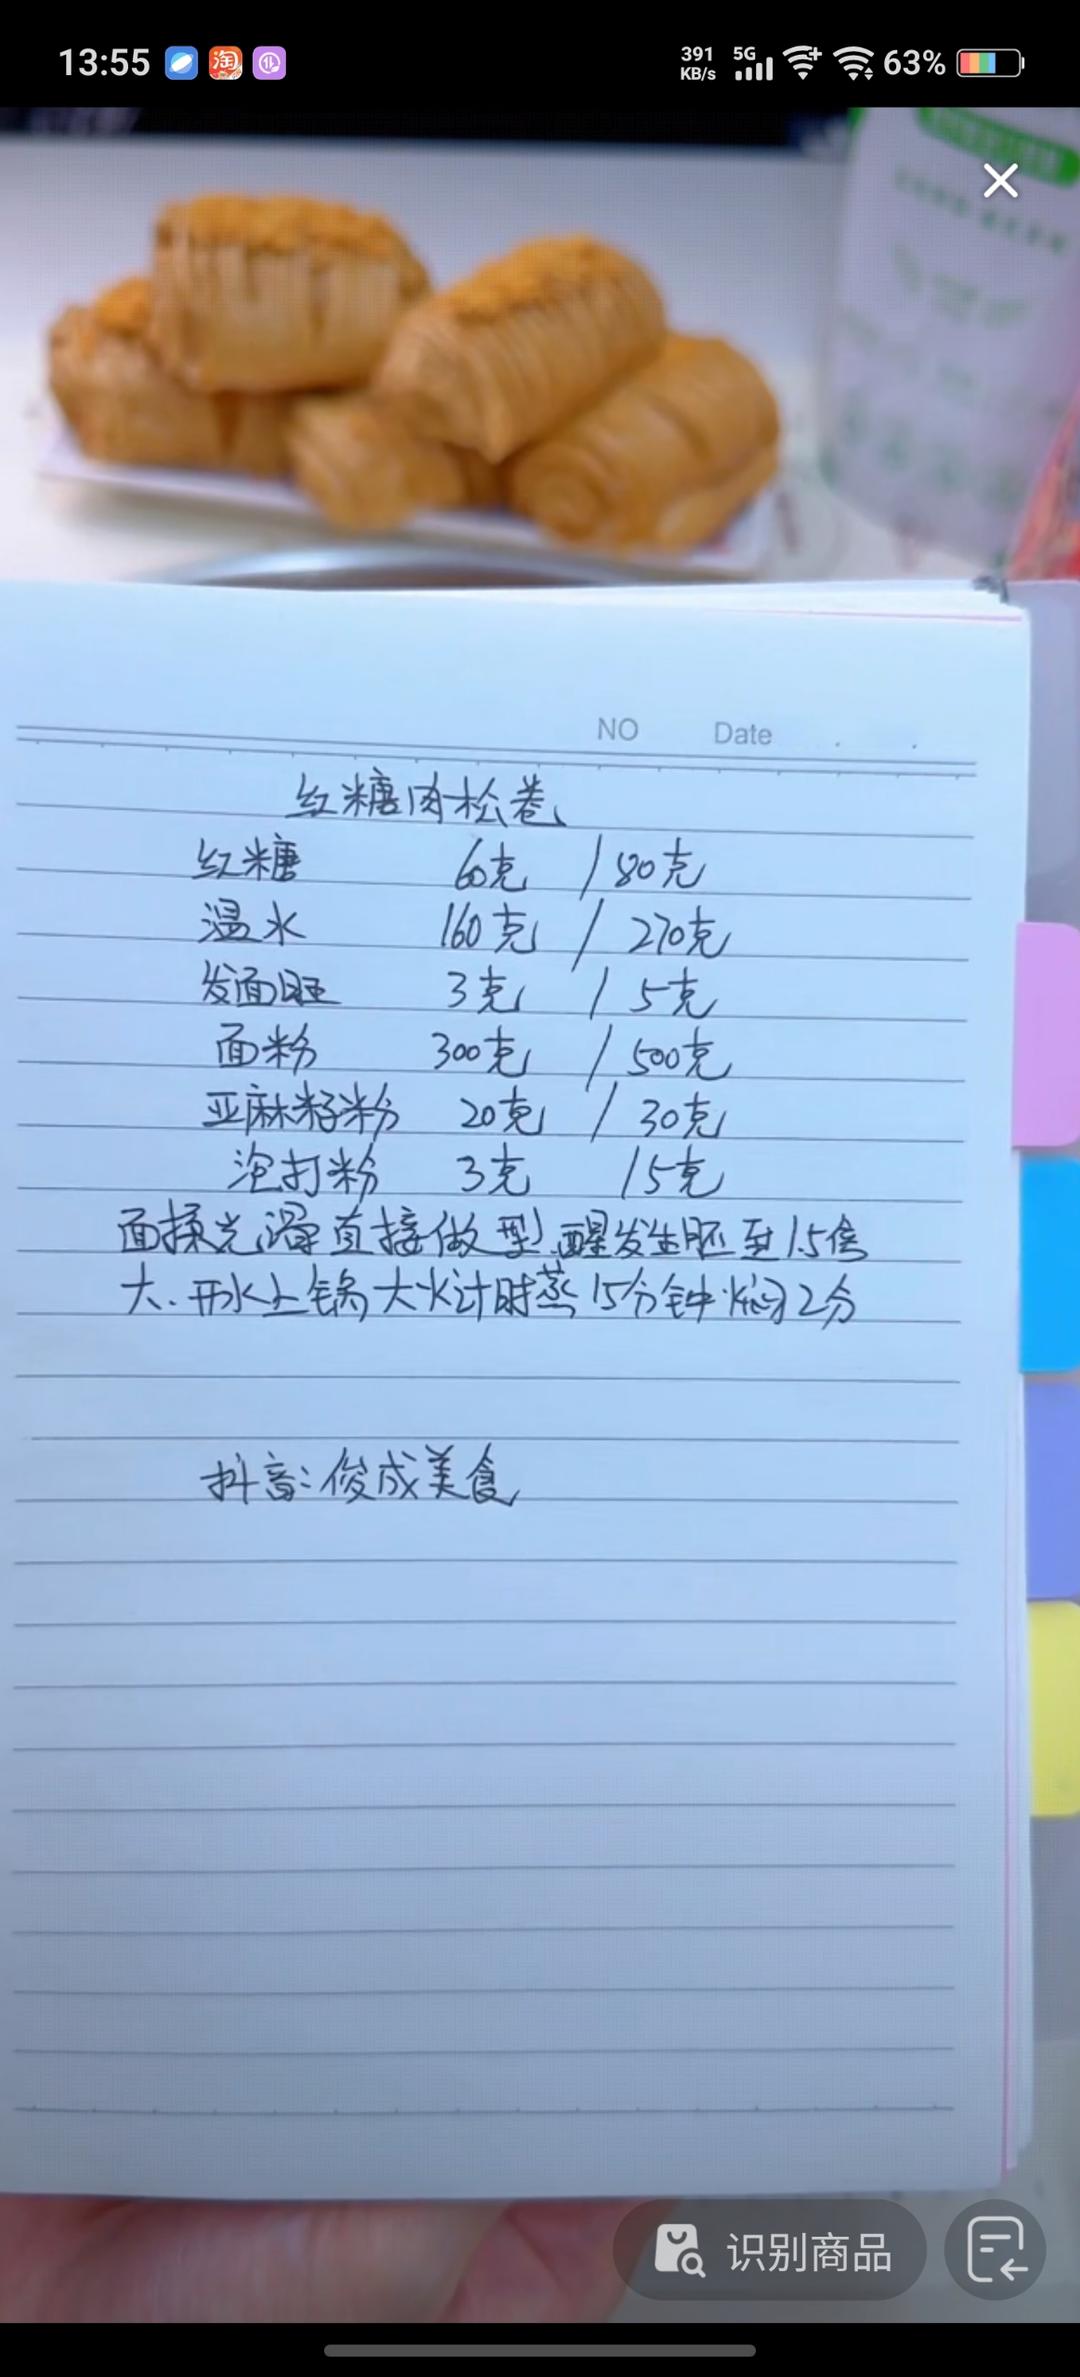 13:55
391 KB/s 5G 63%
NO Date
红糖肉松卷
红糖 60克 / 80克
温水 160克 / 270克
发面旺 3克 / 5克
面粉 300克 / 500克
亚麻籽粉 20克 / 30克
泡打粉 3克 / 5克
面揉光滑直接做型.醒发生胚至1.5倍
大.开水上锅大火计时蒸15分钟.焖2分
抖音:俊成美食
识别商品